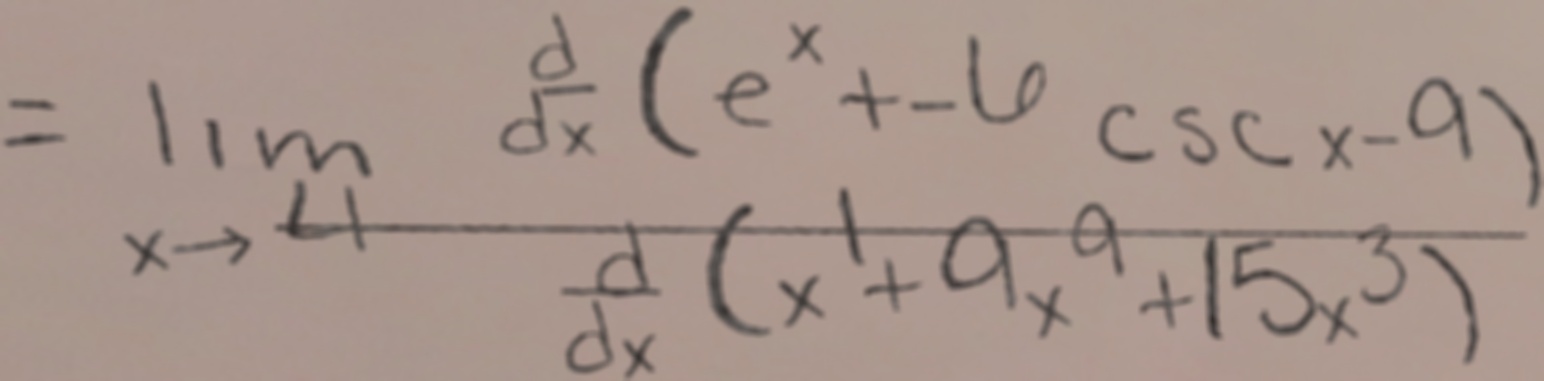 = lim_{x→4} \frac{\frac{d}{dx}(e^x + -6 csc x - 9)}{\frac{d}{dx}(x^1 + 9x^9 + 15x^3)}